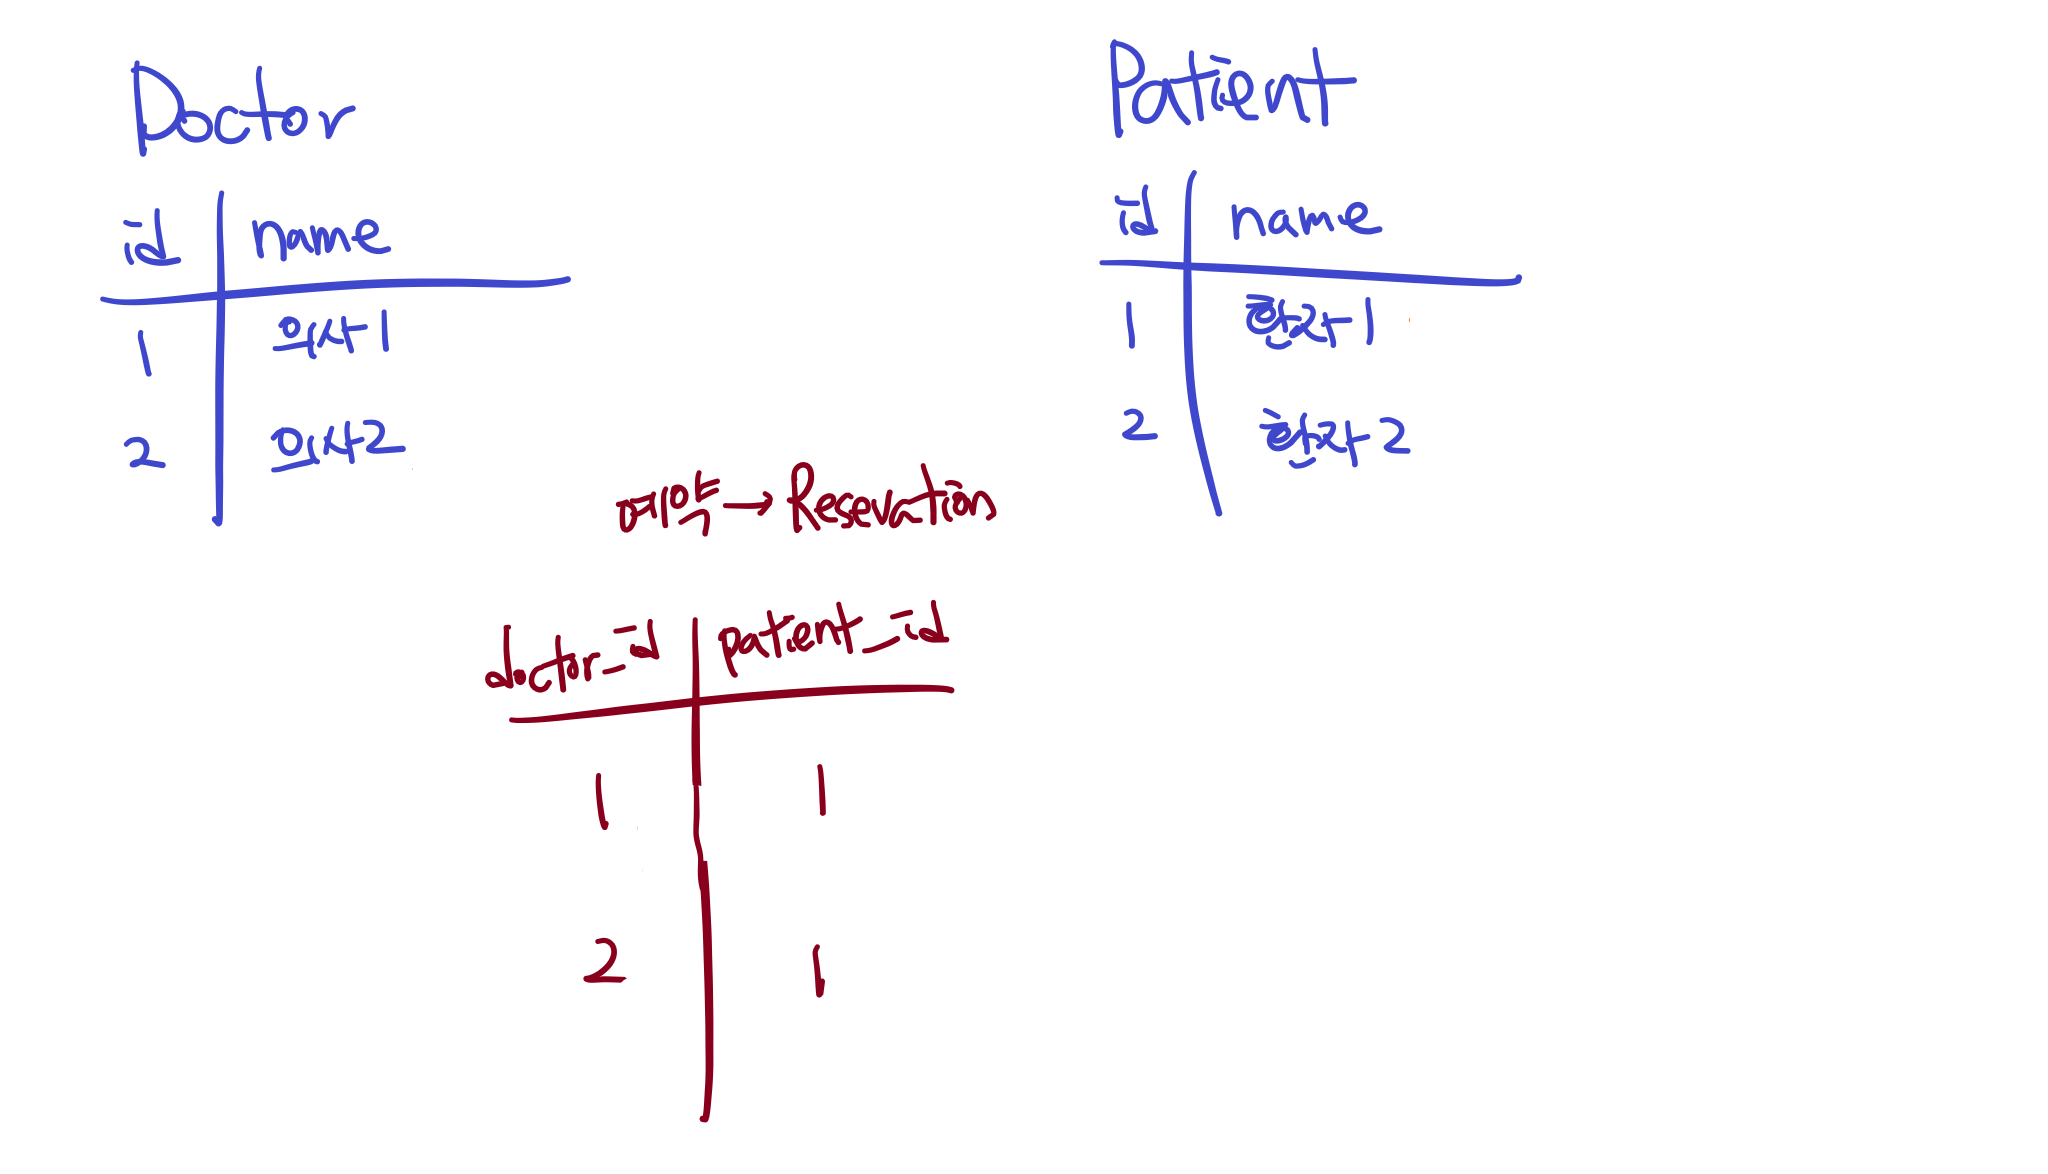 Doctor
id name
1 의사1
2 의사2
Patient
id name
1 환자1
2 환자2
예약 → Reservation
doctor_id patient_id
1 1
2 1